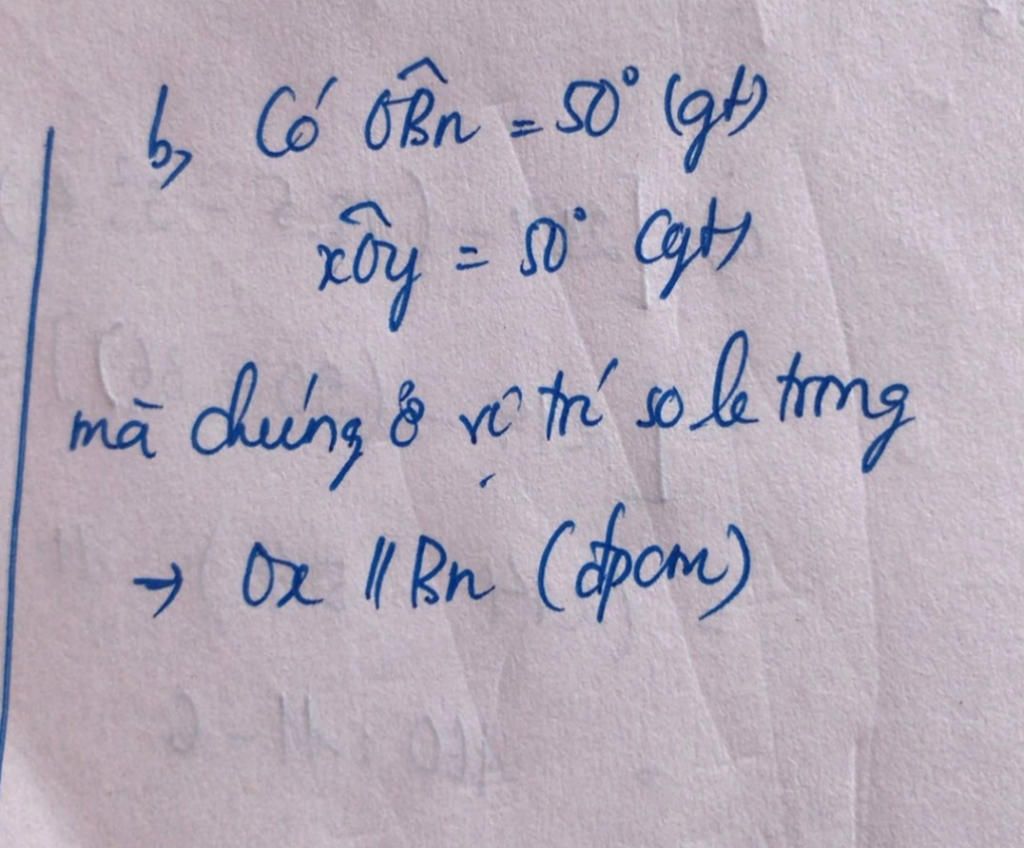 b, Có OB̂n = 50° (gt)
xÔy = 50° (gt)
mà chúng ở vị trí so le trong
→ Ox // Bn (đpcm)